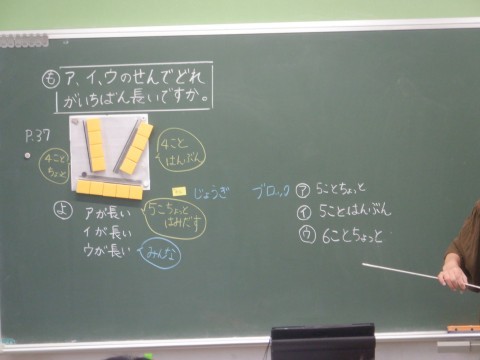 も ア、イ、ウのせんでどれ
がいちばん長いですか。
P.37
4こと
ちょっと
4こと
はんぶん
じょうぎ
ブロック
ア 5ことちょっと
イ 5ことはんぶん
ウ 6ことちょっと
よ アが長い
イが長い
ウが長い
5こちょっと
はみだす
みんな